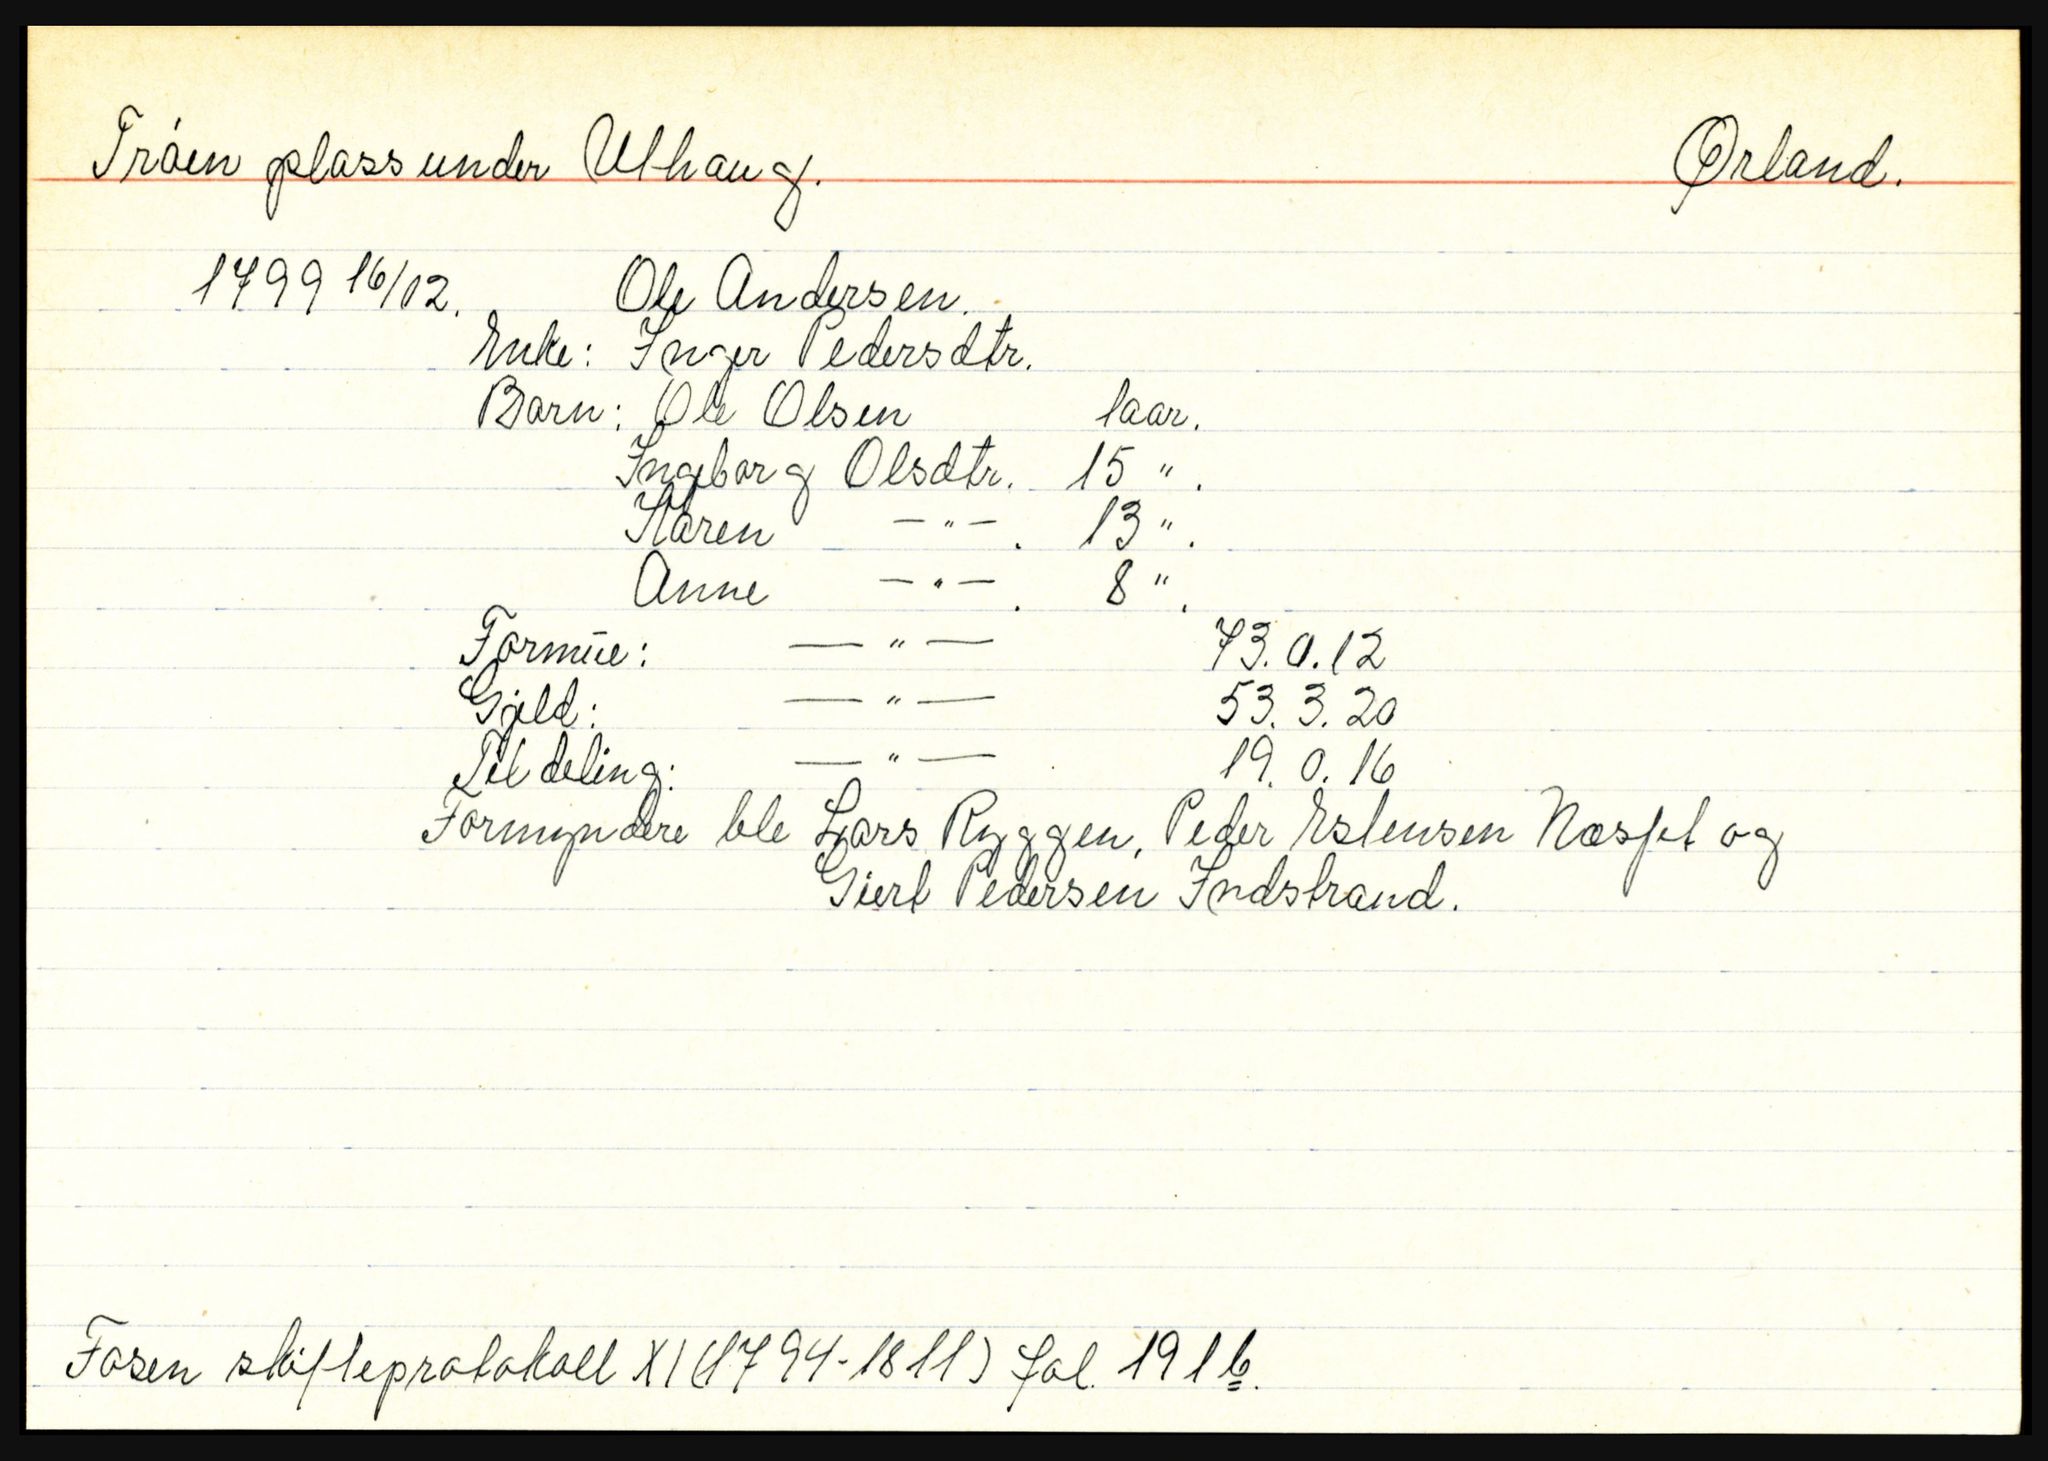 Tråen plass under Ulhaug. Ørland.
1799 16/12. Ole Andersen.
Enke: Inger Pedersdtr.
Barn: Ole Olsen 1 aar.
Ingeborg Olsdtr. 15 ".
Karen —"—. 13 ".
Anne —"—. 8 ".
Formue: —"— 73.0.12
Gjeld: —"— 53.3.20
Til deling: —"— 19.0.16
Formyndere ble Lars Ryggen, Peder Estensen Næsset og
Giert Pedersen Indstrand.
Fosen skifteprotokoll XI (1794-1811) fol. 191b.